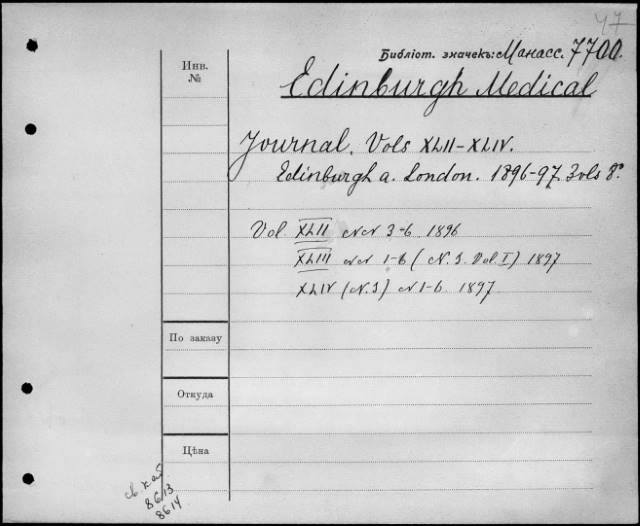 47
Библіот. значекъ: Манасс. 7700.
Инв.
№
Edinburgh Medical
Journal. Vols XLII-XLIV.
Edinburgh a. London. 1896-97. 3 vols 8°.
Vol. XLII NN 3-6 1896
XLIII NN 1-6 (N. S. Vol. I) 1897
XLIV (N. S) N 1-6 1897
По заказу
Откуда
Цѣна
св. кат
8613
8614